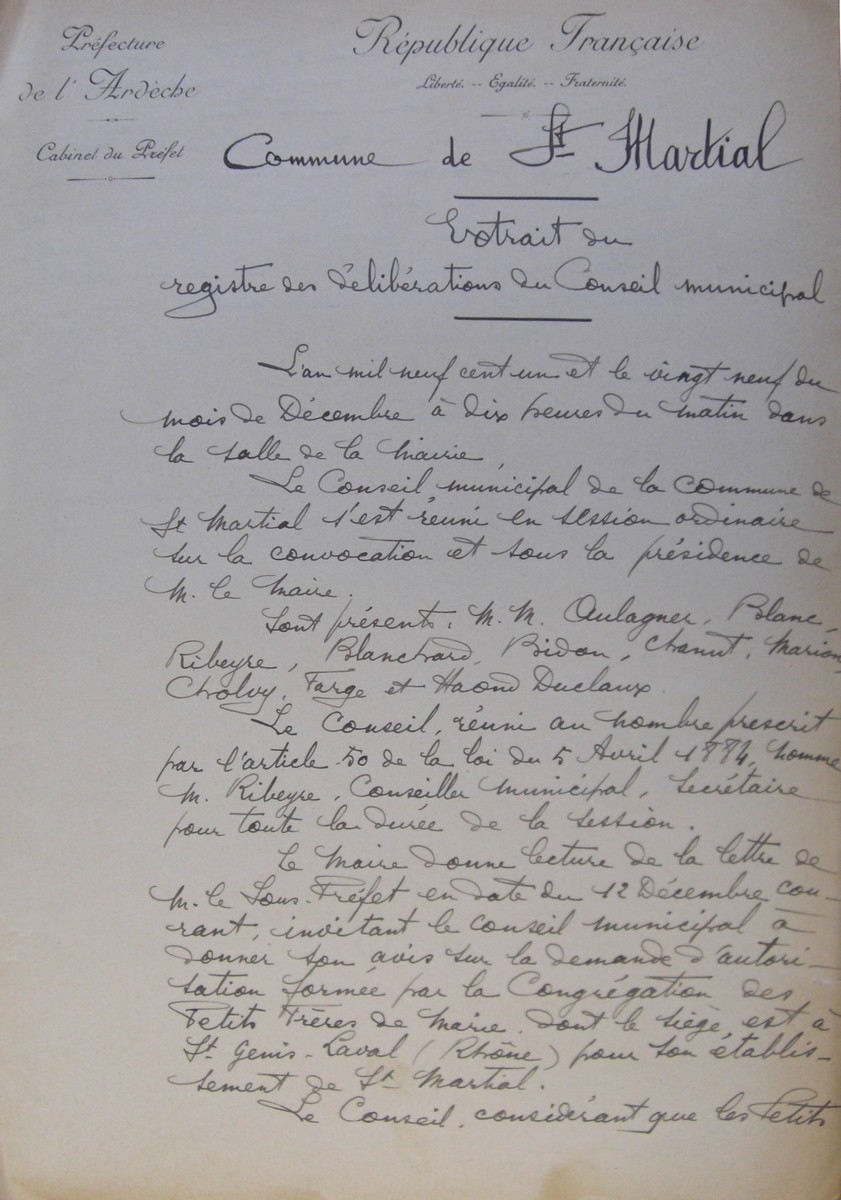 Préfecture
de l'Ardèche
Cabinet du Préfet
République Française
Liberté. -- Egalité. -- Fraternité.
Commune de St Martial
Extrait du
registre des délibérations du Conseil municipal
L'an mil neuf cent un et le vingt neuf du
mois de Décembre à dix heures du matin dans
la salle de la Mairie,
Le Conseil municipal de la commune de
St Martial s'est réuni en session ordinaire
sur la convocation et sous la présidence de
M. le Maire.
Sont présents : M.M. Aulagner, Blanc,
Ribeyre, Blanchard, Bidon, Chanut, Marion,
Cholvy, Farge et Haond Duclaux.
Le Conseil, réuni au nombre prescrit
par l'article 50 de la loi du 5 Avril 1884, nomme
M. Ribeyre, Conseiller municipal, Secrétaire
pour toute la durée de la session.
Le Maire donne lecture de la lettre de
M. le Sous-Préfet en date du 12 Décembre cou-
rant, invitant le conseil municipal à
donner son avis sur la demande d'autori-
sation formée par la Congrégation des
Petits Frères de Marie, dont le siège est à
St Genis-Laval (Rhône) pour son établis-
sement de St Martial.
Le Conseil, considérant que les Petits